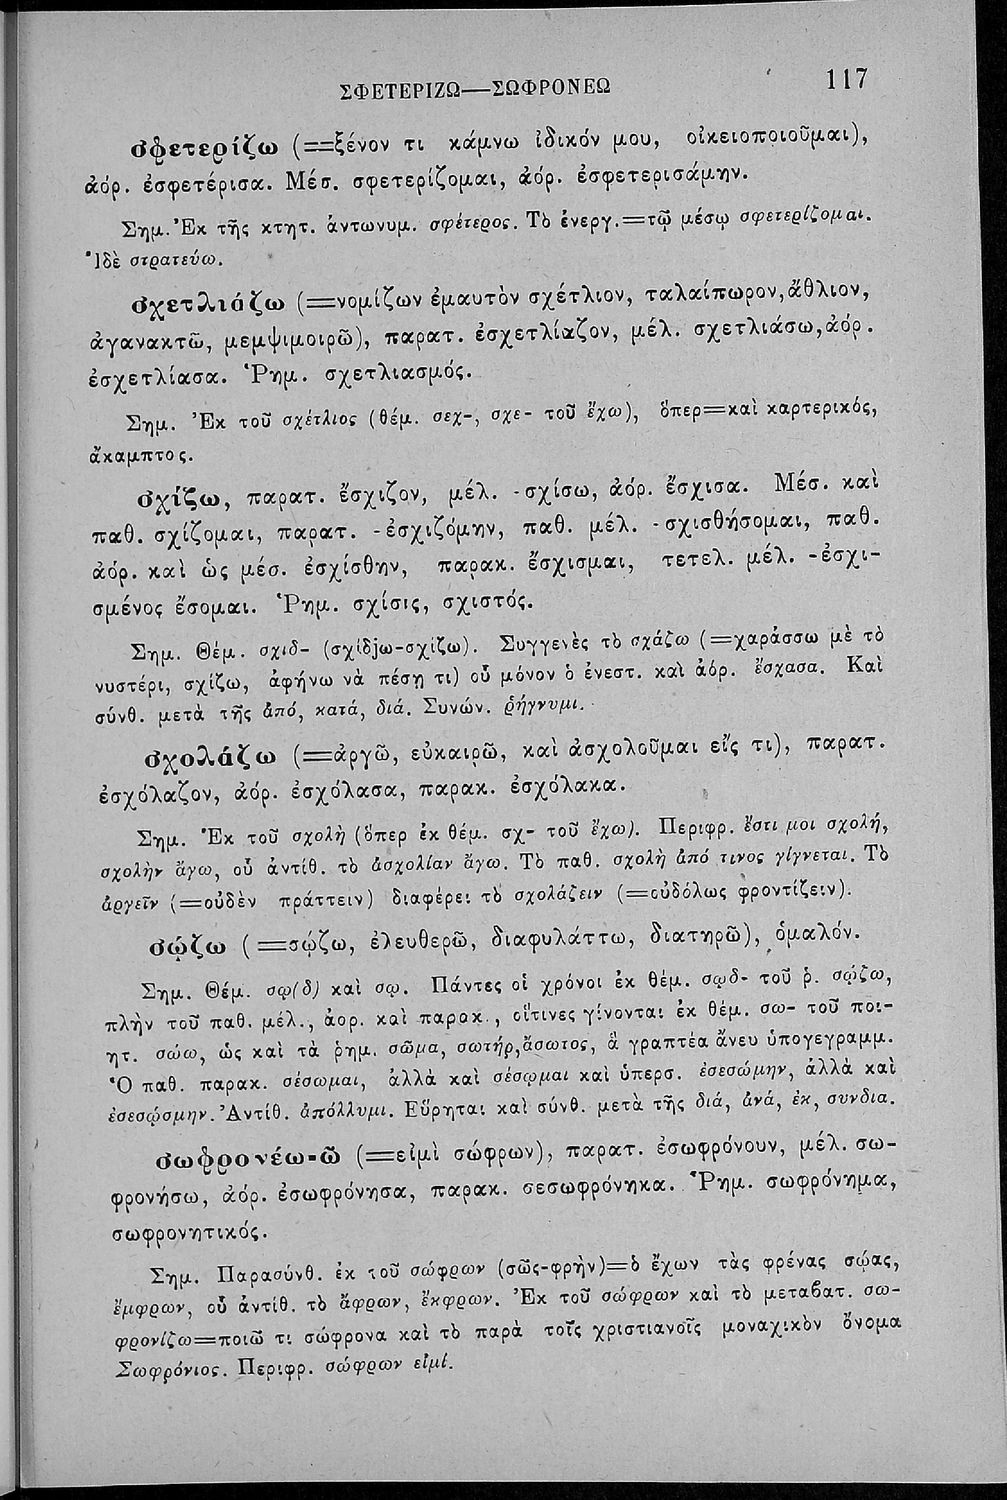 ΣΦΕΤΕΡΙΖΩ—ΣΩΦΡΟΝΕΩ 117
σφετερίζω (=ξένον τι κάμνω ἰδικόν μου, οἰκειοποιοῦμαι),
ἀόρ. ἐσφετέρισα. Μέσ. σφετερίζομαι, ἀόρ. ἐσφετερισάμην.
Σημ. Ἐκ τῆς κτητ. ἀντωνυμ. σφέτερος. Τὸ ἐνεργ.=τῷ μέσῳ σφετερίζομαι.
Ἰδὲ στρατεύω.
σχετλιάζω (=νομίζων ἐμαυτὸν σχέτλιον, ταλαίπωρον, ἄθλιον,
ἀγανακτῶ, μεμψιμοιρῶ), παρατ. ἐσχετλίαζον, μέλ. σχετλιάσω, ἀόρ.
ἐσχετλίασα. Ῥημ. σχετλιασμός.
Σημ. Ἐκ τοῦ σχέτλιος (θέμ. σεχ-, σχε- τοῦ ἔχω), ὅπερ=καὶ καρτερικός,
ἄκαμπτος.
σχίζω, παρατ. ἔσχιζον, μέλ. -σχίσω, ἀόρ. ἔσχισα. Μέσ. καὶ
παθ. σχίζομαι, παρατ. -ἐσχιζόμην, παθ. μέλ. -σχισθήσομαι, παθ.
ἀόρ. καὶ ὡς μέσ. ἐσχίσθην, παρακ. ἔσχισμαι, τετελ. μέλ. -ἐσχι-
σμένος ἔσομαι. Ῥημ. σχίσις, σχιστός.
Σημ. Θέμ. σχιδ- (σχίδjω-σχίζω). Συγγενὲς τὸ σχάζω (=χαράσσω μὲ τὸ
νυστέρι, σχίζω, ἀφήνω νὰ πέσῃ τι) οὗ μόνον ὁ ἐνεστ. καὶ ἀόρ. ἔσχασα. Καὶ
σύνθ. μετὰ τῆς ἀπό, κατά, διά. Συνών. ῥήγνυμι.
σχολάζω (=ἀργῶ, εὐκαιρῶ, καὶ ἀσχολοῦμαι εἴς τι), παρατ.
ἐσχόλαζον, ἀόρ. ἐσχόλασα, παρακ. ἐσχόλακα.
Σημ. Ἐκ τοῦ σχολὴ (ὅπερ ἐκ θέμ. σχ- τοῦ ἔχω). Περιφρ. ἔστι μοι σχολή,
σχολὴν ἄγω, οὗ ἀντίθ. τὸ ἀσχολίαν ἄγω. Τὸ παθ. σχολὴ ἀπό τινος γίγνεται. Τὸ
ἀργεῖν (=οὐδὲν πράττειν) διαφέρει τὸ σχολάζειν (=οὐδόλως φροντίζειν).
σῴζω (=σῴζω, ἐλευθερῶ, διαφυλάττω, διατηρῶ), ὁμαλόν.
Σημ. Θέμ. σῳ(δ) καὶ σῳ. Πάντες οἱ χρόνοι ἐκ θέμ. σῳδ- τοῦ ῥ. σῴζω,
πλὴν τοῦ παθ. μέλ., ἀορ. καὶ παρακ., οἵτινες γίνονται ἐκ θέμ. σω- τοῦ ποι-
ητ. σώω, ὡς καὶ τὰ ῥημ. σῶμα, σωτήρ, ἄσωτος, ἃ γραπτέα ἄνευ ὑπογεγραμμ.
Ὁ παθ. παρακ. σέσωμαι, ἀλλὰ καὶ σέσῳμαι καὶ ὑπερσ. ἐσεσώμην, ἀλλὰ καὶ
ἐσεσῴσμην. Ἀντίθ. ἀπόλλυμι. Εὕρηται καὶ σύνθ. μετὰ τῆς διά, ἀνά, ἐκ, συνδια.
σωφρονέω-ῶ (=εἰμὶ σώφρων), παρατ. ἐσωφρόνουν, μέλ. σω-
φρονήσω, ἀόρ. ἐσωφρόνησα, παρακ. σεσωφρόνηκα. Ῥημ. σωφρόνημα,
σωφρονητικός.
Σημ. Παρασύνθ. ἐκ τοῦ σώφρων (σῶς-φρὴν)=ὁ ἔχων τὰς φρένας σῴας,
ἔμφρων, οὗ ἀντίθ. τὸ ἄφρων, ἔκφρων. Ἐκ τοῦ σώφρων καὶ τὸ μεταβατ. σω-
φρονίζω=ποιῶ τι σώφρονα καὶ τὸ παρὰ τοῖς χριστιανοῖς μοναχικὸν ὄνομα
Σωφρόνιος. Περιφρ. σώφρων εἰμί.